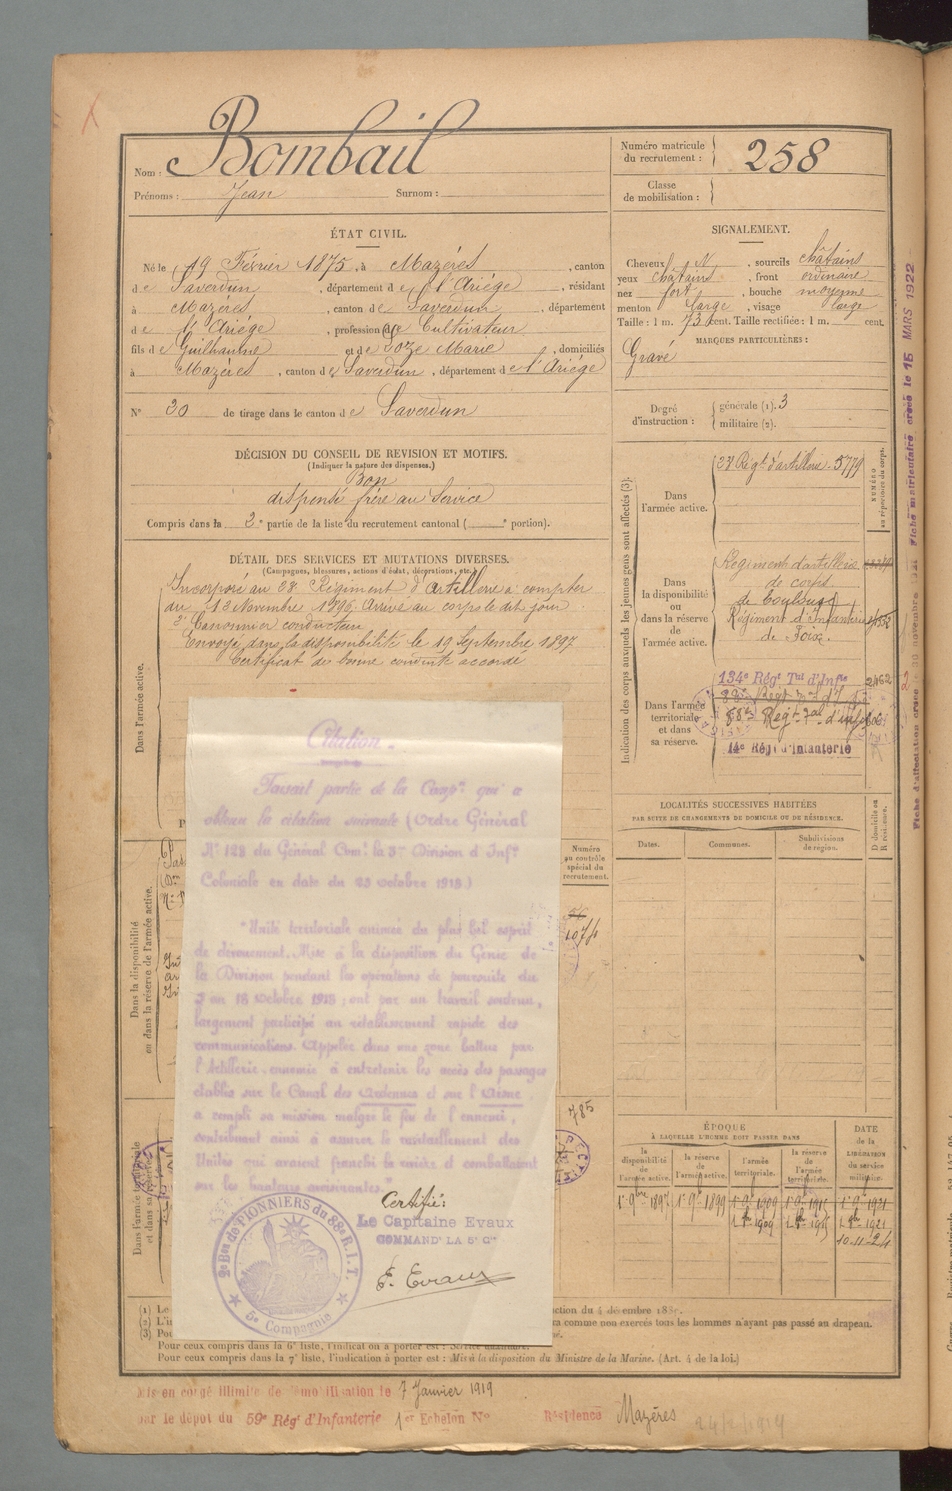 Nom : Bombail
Prénoms : Jean Surnom :
Numéro matricule
du recrutement : 258
Classe
de mobilisation :
ÉTAT CIVIL.
Né le 19 Février 1875, à Mazéres, canton
de Saverdun, département de l'Ariége, résidant
à Mazéres, canton de Saverdun, département
de l'Ariége, profession de Cultivateur
fils de Guilhaume et de Marie, domiciliés
à Mazéres, canton de Saverdun, département de l'Ariége
N° 20 de tirage dans le canton de Saverdun
SIGNALEMENT.
Cheveux N, sourcils châtains
yeux châtains, front ordinaire
nez fort, bouche moyenne
menton large, visage large
Taille : 1 m. 73 cent. Taille rectifiée : 1 m. cent.
MARQUES PARTICULIÈRES :
Gravé
Degré
d'instruction :
générale (1). 3
militaire (2).
DÉCISION DU CONSEIL DE REVISION ET MOTIFS.
(Indiquer la nature des dispenses.)
Bon
dispensé frère au Service
Compris dans la 2e partie de la liste du recrutement cantonal ( e portion).
DÉTAIL DES SERVICES ET MUTATIONS DIVERSES.
(Campagnes, blessures, actions d'éclat, décorations, etc.)
Dans l'armée active.
Incorporé au 23e Régiment d'artillerie à compter
du 13 Novembre 1896. Arrivé au corps le dit jour
2e Canonnier conducteur
Envoyé dans la disponibilité le 19 Septembre 1897
Certificat de bonne conduite accordé
Indication des corps auxquels les jeunes gens sont affectés (3).
NUMÉRO
au répertoire du corps.
Dans
l'armée active.
23 Régt d'artillerie. 5779
Dans
la disponibilité
ou
dans la réserve
de
l'armée active.
Régiment d'artillerie
de corps
de Toulouse
Régiment d'Infanterie
de Foix
Dans l'armée
territoriale
et dans
sa réserve.
134e Régt Tal d'Infie
2462
88e Regt Tal d'inf
14e Régt d'Infanterie
LOCALITÉS SUCCESSIVES HABITÉES
PAR SUITE DE CHANGEMENTS DE DOMICILE OU DE RÉSIDENCE.
Dates. Communes. Subdivisions
de région.
D domicile ou
R résidence.
Dans la disponibilité
ou dans la réserve de l'armée active.
Numéro
au contrôle
spécial du
recrutement.
Dans l'armée territoriale
et dans sa réserve.
785
Citation.
Faisait partie de la Compie qui a
obtenu la citation suivante (Ordre Général
N° 128 du Général Comt la 3me Division d'Infie
Coloniale en date du 23 octobre 1918)
"Unité territoriale animée du plus bel esprit
de dévouement. Mise à la disposition du Génie de
la Division pendant les opérations de poursuite du
5 au 18 octobre 1918 ; ont par un travail soutenu,
largement participé au rétablissement rapide des
communications. Appelée dans une zone battue par
l'Artillerie ennemie à entretenir les accès des passages
établis sur le Canal des Ardennes et sur l'Aisne
a rempli sa mission malgré le feu de l'ennemi,
contribuant ainsi à assurer le ravitaillement des
Unités qui avaient franchi la rivière et combattaient
sur les hauteurs avoisinantes."
Certifié :
Le Capitaine Evaux
COMMANDt LA 5e Cie
E. Evaux
2e Bon de PIONNIERS du 88e R.I.T.
5e Compagnie
ÉPOQUE
À LAQUELLE L'HOMME DOIT PASSER DANS
DATE
de la
LIBÉRATION
du service
militaire.
la
disponibilité
de
l'armée active.
la réserve
de
l'armée active.
l'armée
territoriale.
la
réserve
de
l'armée
territoriale.
1er 9bre 1897 1er 9bre 1899 1er 9bre 1909 1er 9bre 1915 1er 9bre 1921
10-11-24
(1) Le
ction du 4 décembre 188
(2) L'i
ra comme non exercés tous les hommes n'ayant pas passé au drapeau.
(3) Pou
Pour ceux compris dans la 6e liste, l'indication à porter est : Service auxiliaire.
Pour ceux compris dans la 7e liste, l'indication à porter est : Mis à la disposition du Ministre de la Marine. (Art. 4 de la loi.)
Mis en congé illimité de démobilisation le 7 Janvier 1919
par le dépôt du 59e Régt d'Infanterie 1er Echelon N° Résidence Mazères
Fiche matriculaire créée le 15 MARS 1922